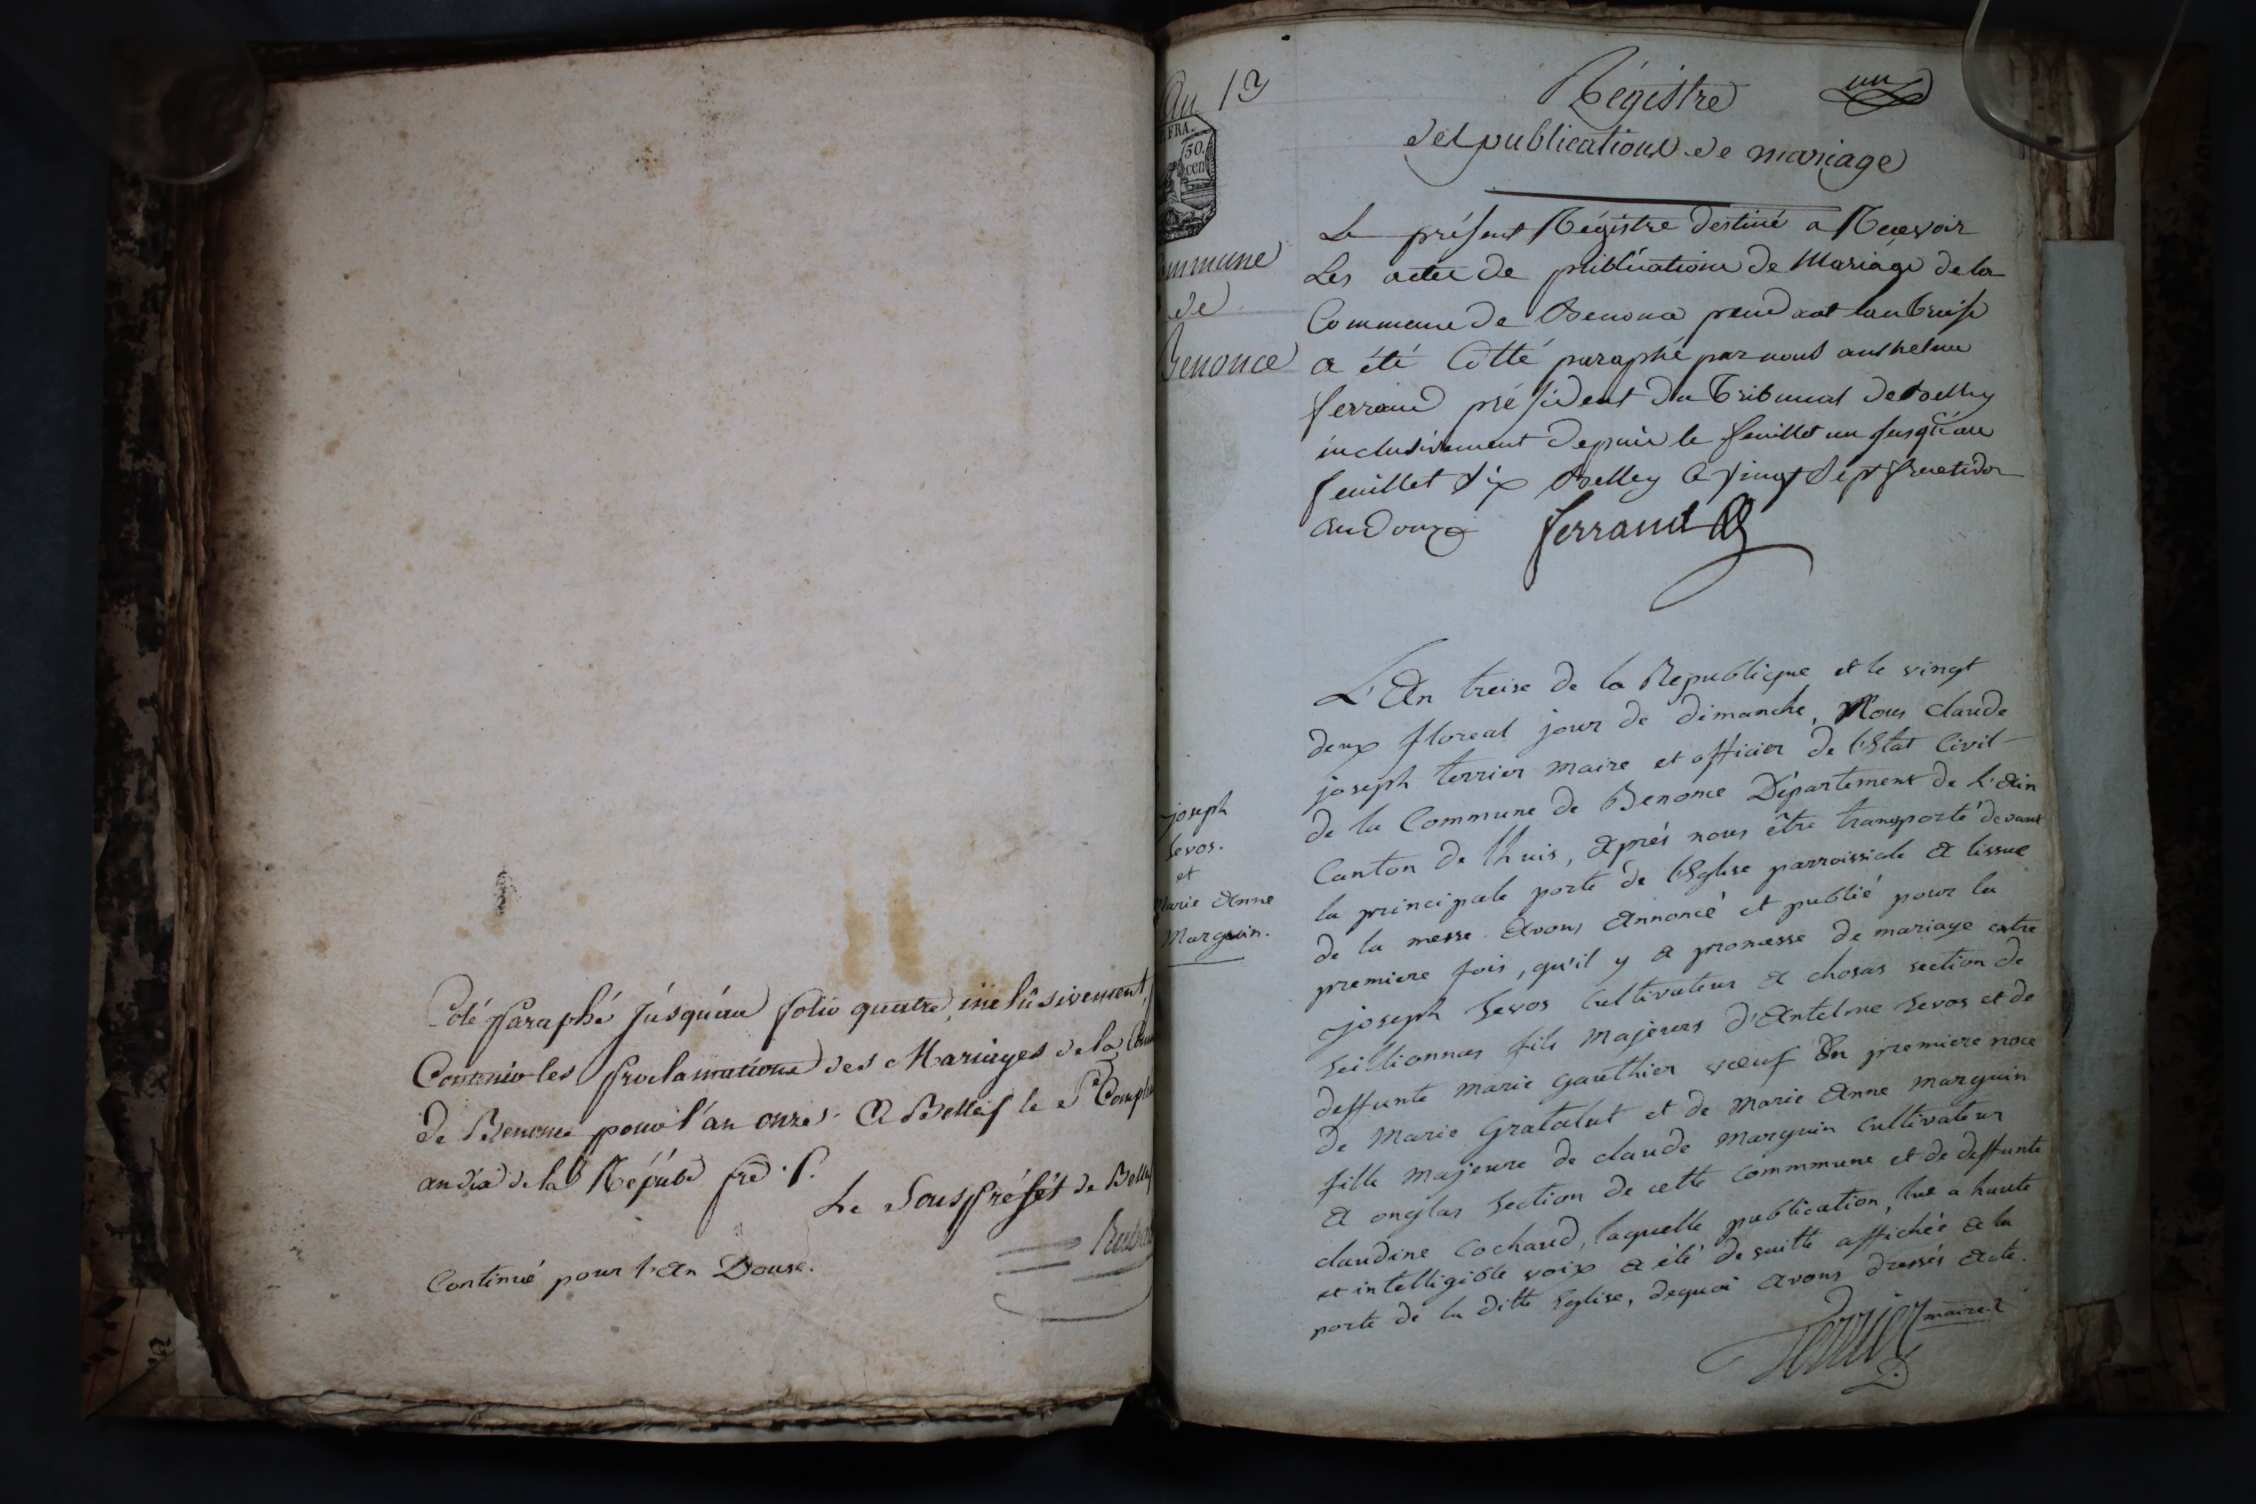 Coté Paraphé Jusqu'au folio quatre inclusivement,
Contenir les proclamations des Mariages de la
de Benonce pour l'an onze. A Belley le
an dix de la Répub. fre. P.
Le Sous Préfet de Belley
Continué pour l'An Douse.
An 13
FRA.
50.
cen
ommune
de
Benonce
un
Régistre
des publications de mariage
Le présent Régistre destiné a Recevoir
Les actes de publications de Mariage de la
Commune de Benonce pendant lan treise
a été Cotté paraphé par nous anthelme
ferrand président du Tribunal de Belley
inclusivement depuis le feuillet un jusqu'au
feuillet six Belley le vingt sept fructidor
an douze ferrand
joseph
Sevos.
et
Marie Anne
Marguin.
L'An treise de la Republique et le vingt
deux floreal jour de dimanche, Nous claude
joseph terrier maire et officier de l'Etat Civil
de la Commune de Benonce Département de L'Ain
Canton de lhuis, Aprés nous être transporté devant
la principale porte de l'Eglise parroissiale A lissue
de la messe Avons Annoncé et publié pour la
premiere fois, qu'il y a promesse de mariage entre
joseph Sevos Cultivateur A chosas section de
Seillionnas fils Majeurs d'Antelme Sevos et de
deffunte Marie Gauthier vœuf En premiere noce
de Marie Gratalut et de Marie Anne Marguin
fille Majeure de claude Marguin Cultivateur
A onglas Section de cette Commmune et de deffunte
claudine Cochaud, laquelle publication, lue a haute
et intelligible voix a été de suitte affichée a la
porte de la ditte Eglise, dequoi avons dressés Acte.
Terrier maire